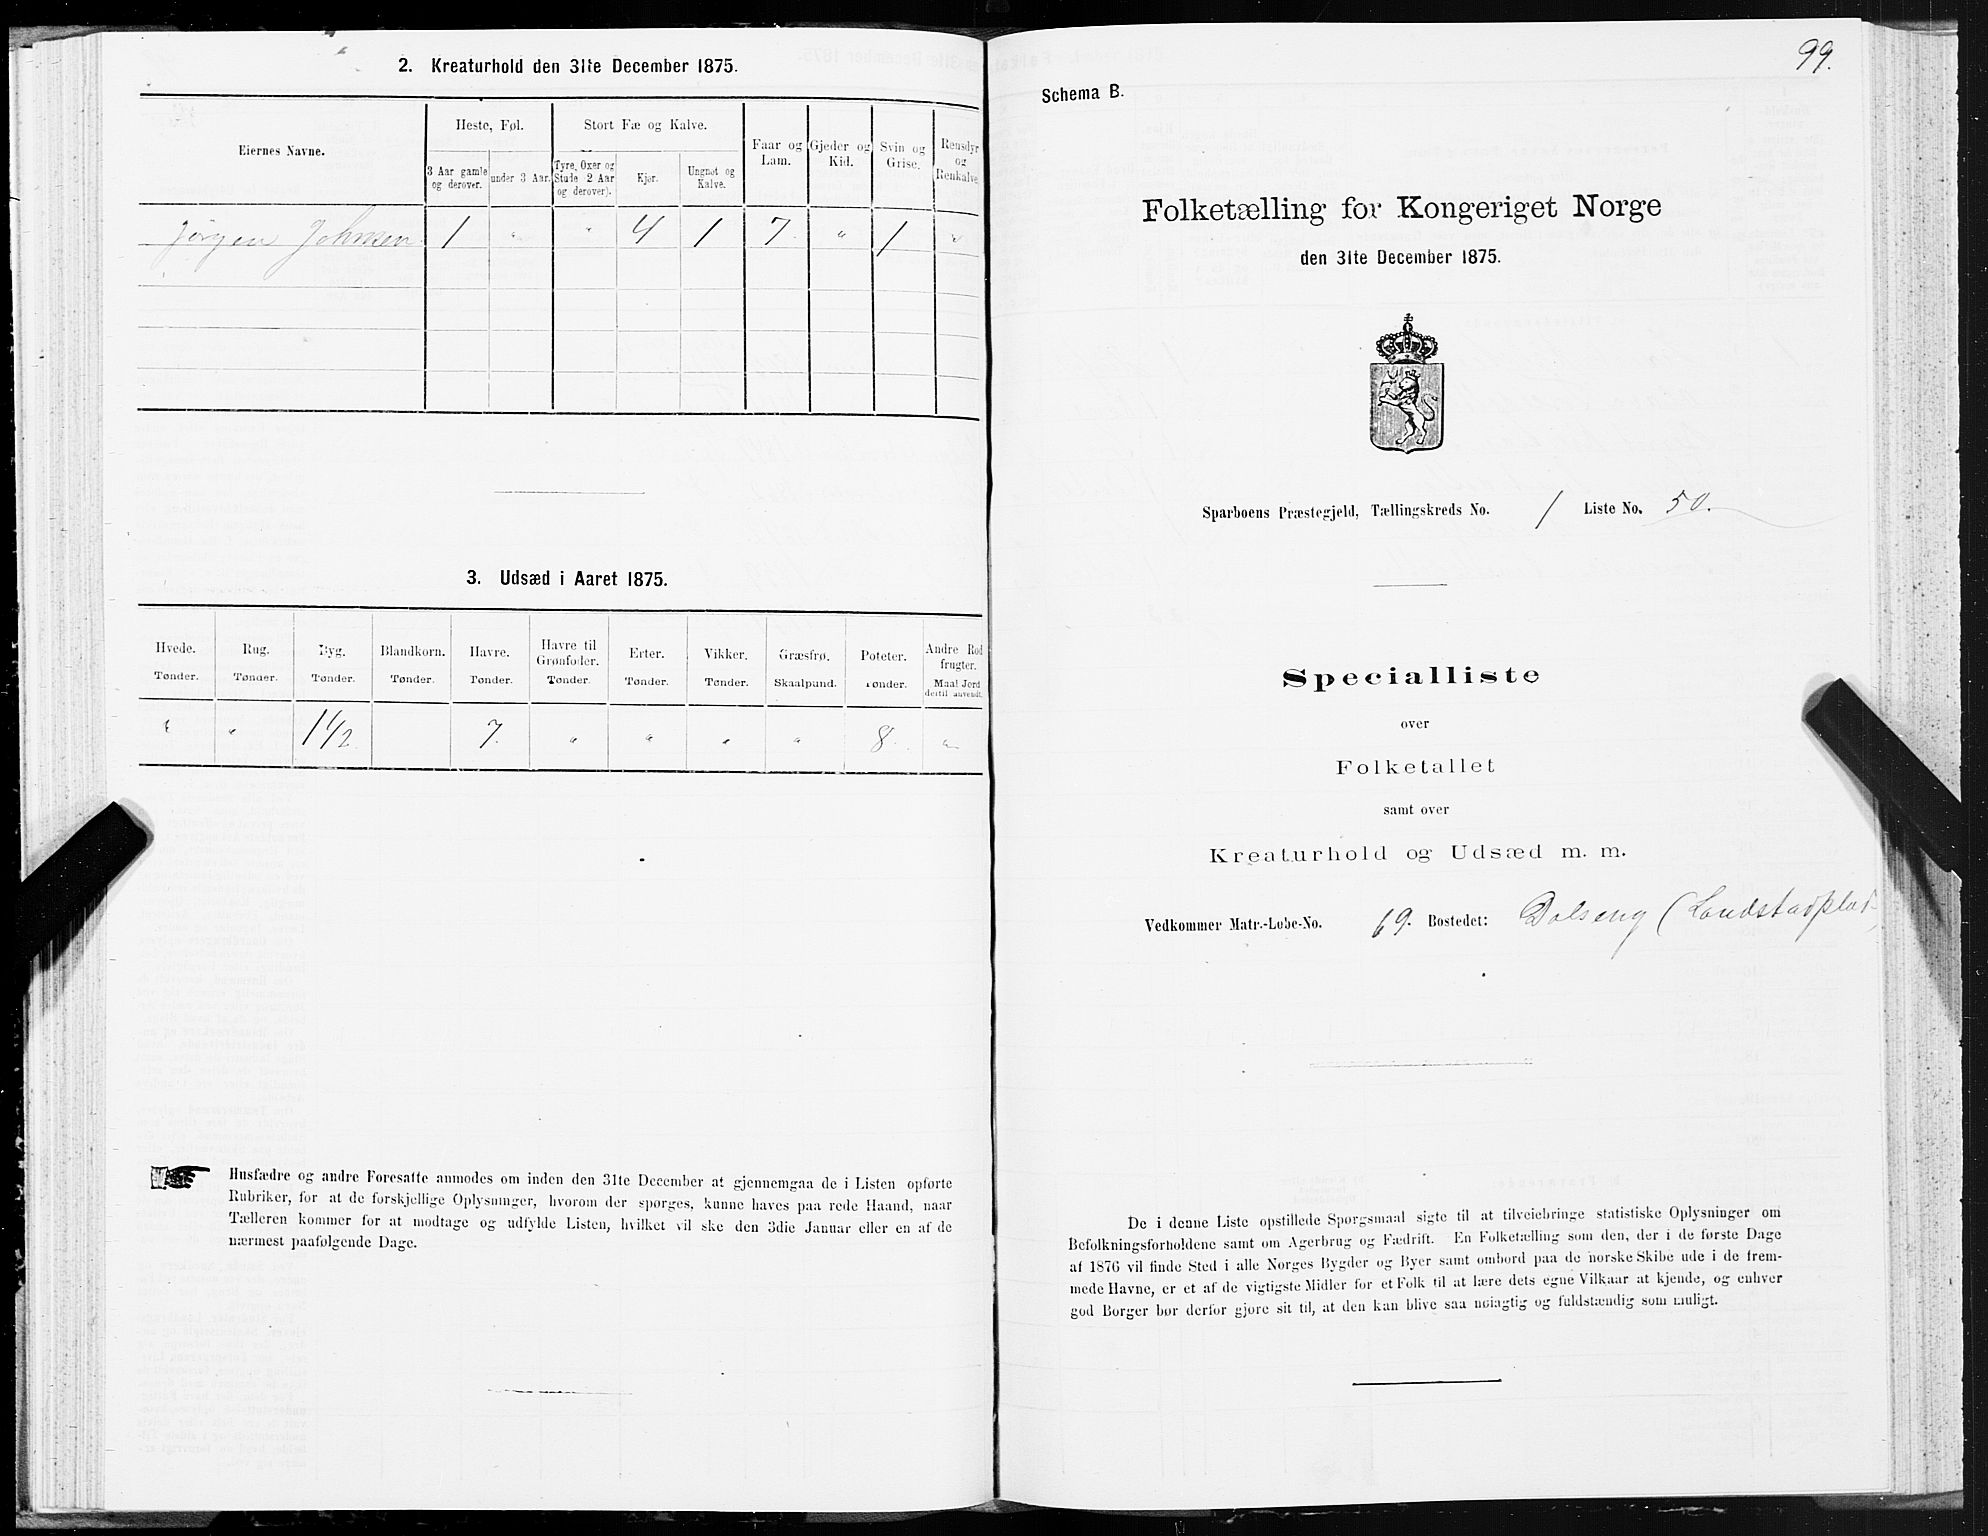 2. Kreaturhold den 31te December 1875.
Eiernes Navne.
Heste, Føl.
Stort Fæ og Kalve.
Faar og Lam.
Gjeder og Kid.
Svin og Grise.
Rensdyr og Renkalve.
3 Aar gamle og derover.
under 3 Aar.
Tyre, Oxer og Stude 2 Aar og derover).
Kjør.
Ungnøt og Kalve.
Jørgen Johnsen 1 " " 4 1 7 " 1 "
3. Udsæd i Aaret 1875.
Hvede. Rug. Byg. Blandkorn. Havre. Havre til Grønfoder. Erter. Vikker. Græsfrø. Poteter. Andre Rodfrugter.
Tønder. Tønder. Tønder. Tønder. Tønder. Tønder. Tønder. Tønder. Skaalpund. Tønder. Maal Jord dertil anvendt.
" " 1 1/2 7. " " " " 8. "
Husfædre og andre Foresatte anmodes om inden den 31te December at gjennemgaa de i Listen opførte
Rubriker, for at de forskjellige Oplysninger, hvorom der spørges, kunne haves paa rede Haand, naar
Tælleren kommer for at modtage og udfylde Listen, hvilket vil ske den 3die Januar eller en af de
nærmest paafølgende Dage.
99.
Schema B.
Folketælling for Kongeriget Norge
den 31te December 1875.
Sparboens Præstegjeld, Tællingskreds No. 1 Liste No. 50.
Specialliste
over
Folketallet
samt over
Kreaturhold og Udsæd m. m.
Vedkommer Matr.-Løbe-No. 69. Bostedet: Dalseng (Landstadplad
De i denne Liste opstillede Spørgsmaal sigte til at tilveiebringe statistiske Oplysninger om
Befolkningsforholdene samt om Agerbrug og Fædrift. En Folketælling som den, der i de første Dage
af 1876 vil finde Sted i alle Norges Bygder og Byer samt ombord paa de norske Skibe ude i de frem-
mede Havne, er et af de vigtigste Midler for et Folk til at lære dets egne Vilkaar at kjende, og enhver
god Borger bør derfor gjøre sit til, at den kan blive saa nøiagtig og fuldstændig som muligt.